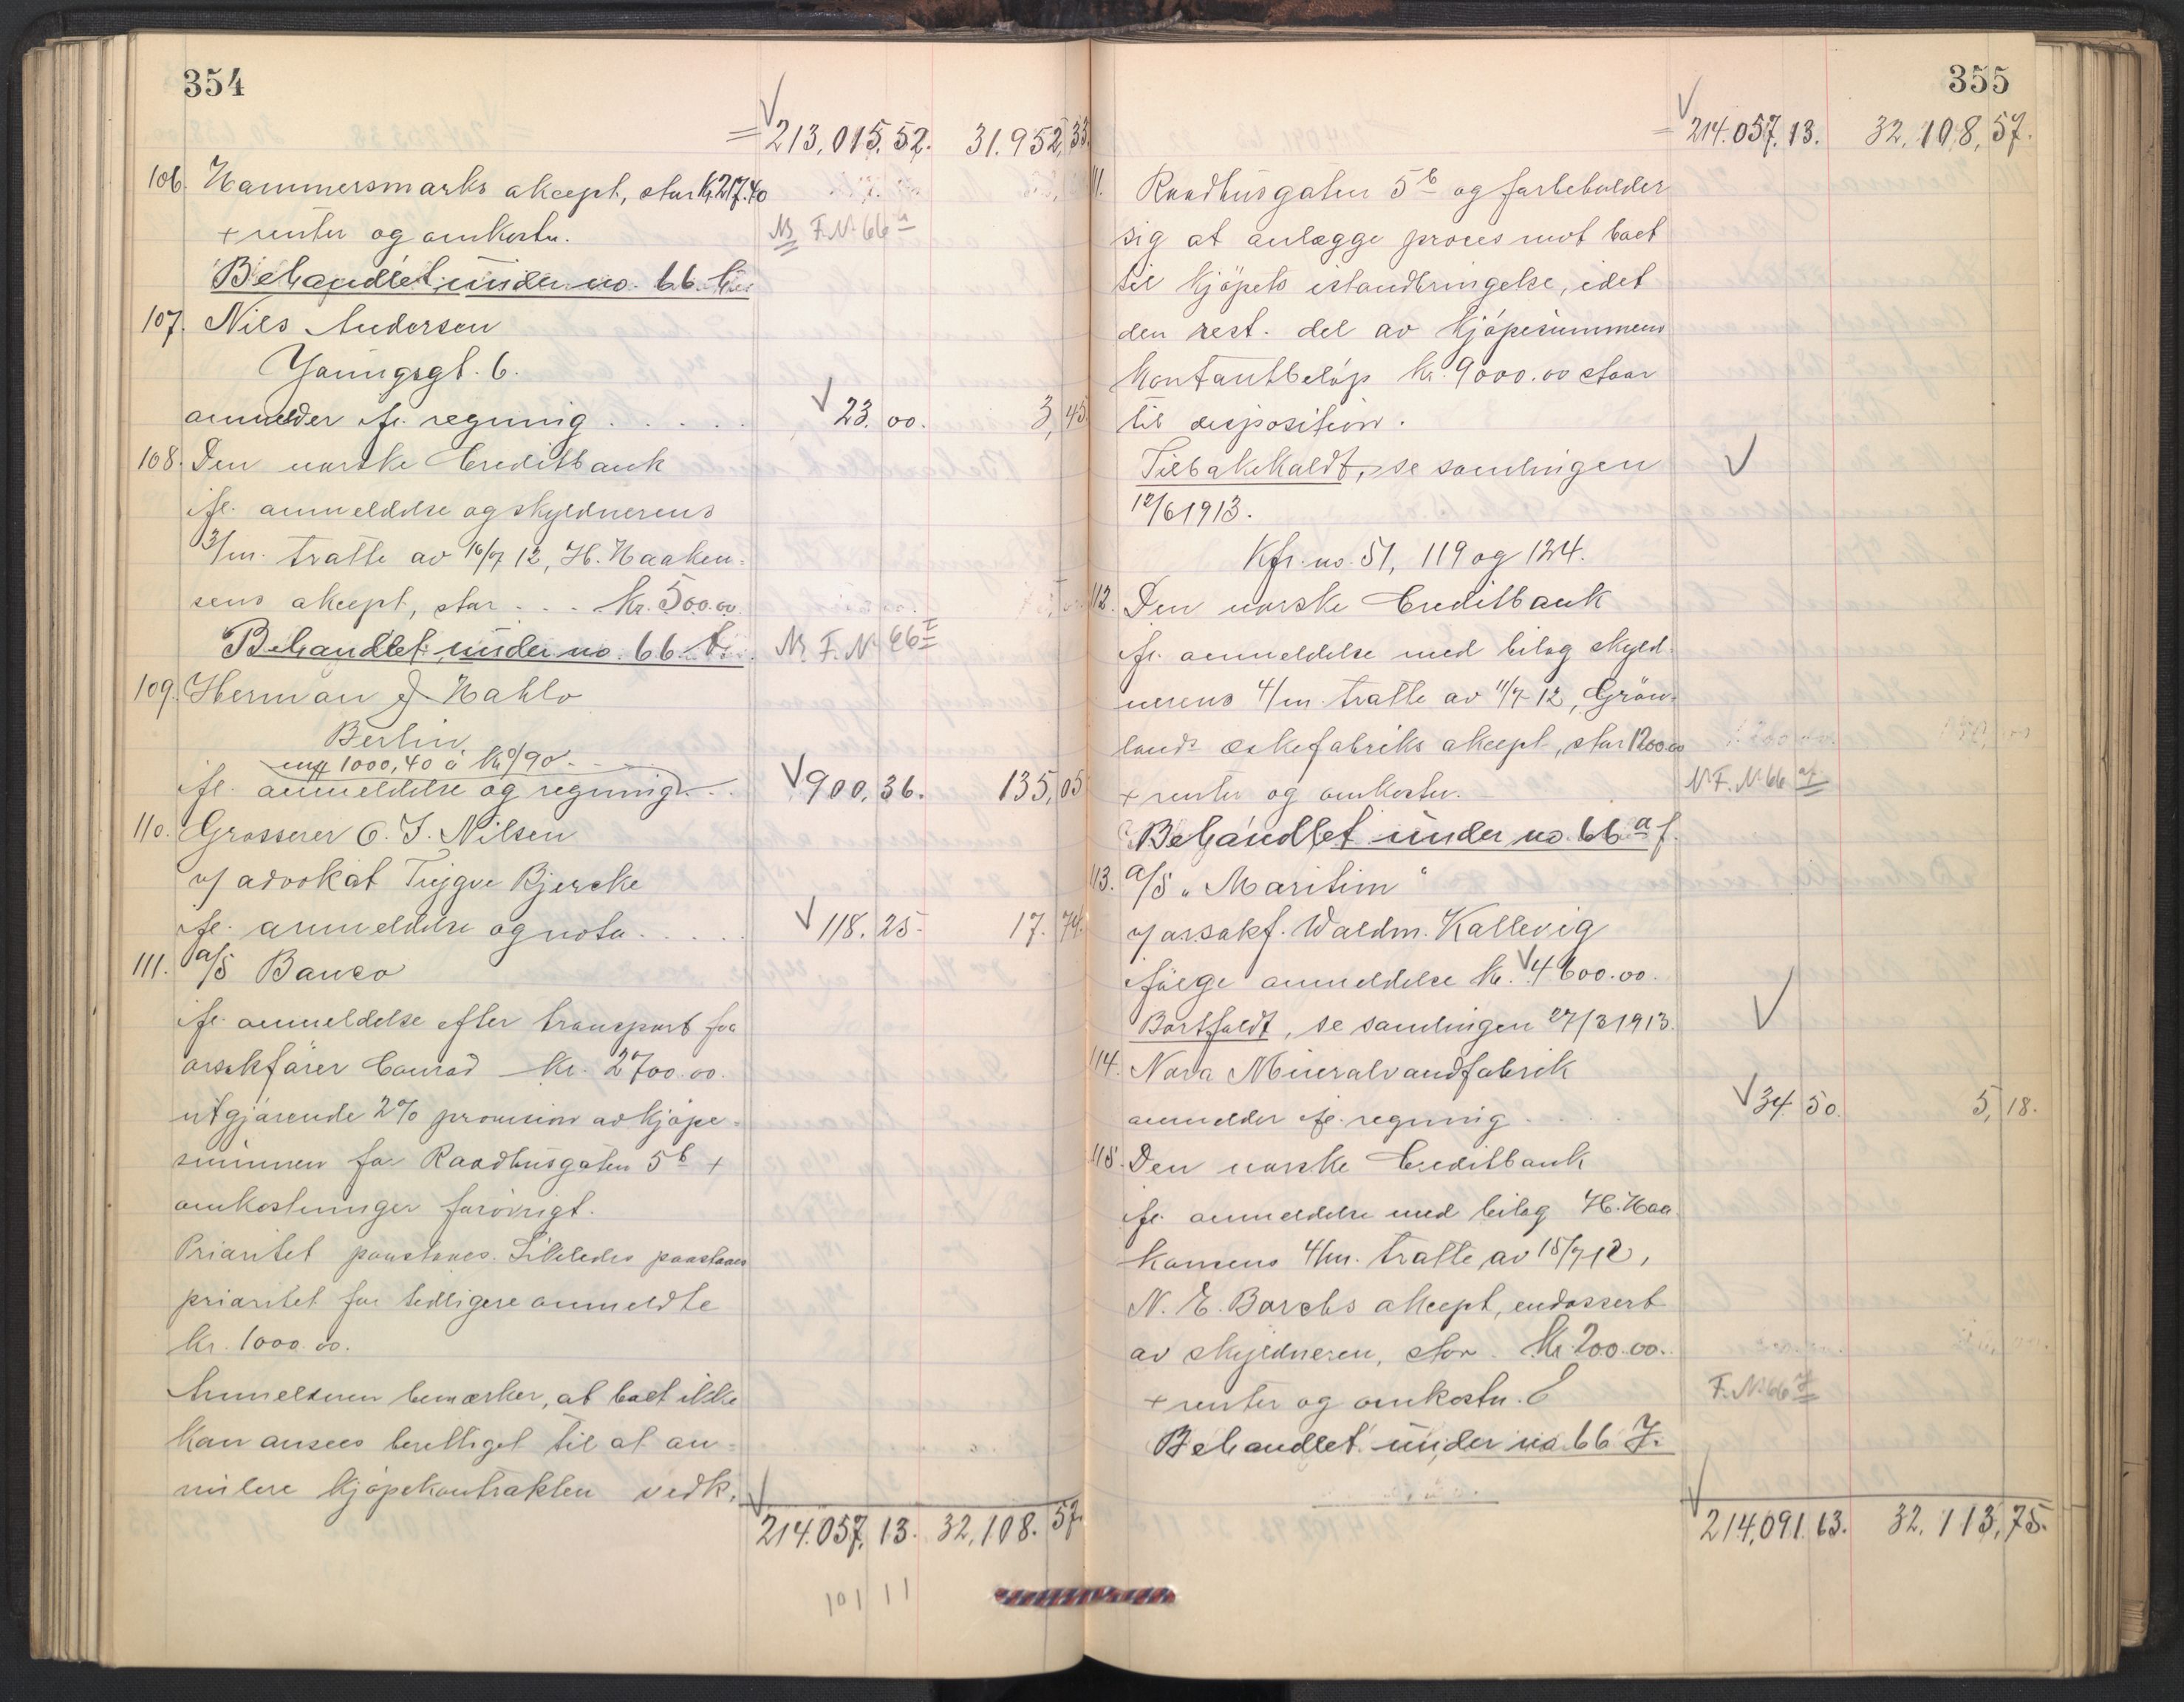 354
= 213,015.52. 31.952,33
106. Hammersmarks akcept, stor Kr. 217.40
+ renter og omkostn. F. N. 66
Behandlet under no. 66
107. Nils Andersen
Youngsgt. 6.
anmelder ifl. regning . . . . . 23.00. 3,45
108. Den norske Creditbank
ifl. anmeldelse og skyldnerens
3/m. tratte av 16/7 12, H. Haaken-
sens akcept, stor . . . Kr. 500.00
Behandlet under no. 66 F. N. 66
109. Herman J. Kahlo
Berlin
1000,40 à Kr 0/90
ifl. anmeldelse og regning . . . 900,36. 135,05
110. Grosserer O. J. Nilsen
v/ advokat Trygve Bjercke
ifl. anmeldelse og nota . . . . . 118.25 17.74
111. a/s Banco
ifl. anmeldelse efter transport fra
orsakfører Conrad Kr. 2700.00.
utgjørende 2% provision av kjøpe-
summen for Raadhusgaten 5b +
omkostninger forøvrigt.
Prioritet paastaaes. Likeledes paastaaes
prioritet for tidligere anmeldte
Kr. 1000.00.
Anmelderen bemærker, at boet ikke
kan ansees berettiget til at an-
nulere kjøpekontrakten vedk.
214.057,13. 32,108.57
101 11
355
= 214.057.13. 32,108,57.
111. Raadhusgaten 5b og forbeholder
sig at anlægge proces mot boet
til kjøpets istandbringelse, idet
den rest. del av kjøpesummens
kontantbeløp Kr. 9000.00 staar
til disposition.
Tilbakekaldt, se samlingen
12/6 1913.
Kfr. no. 51, 119 og 124.
112. Den norske Creditbank
ifl. anmeldelse med bilag skyld-
nerens 4/m. tratte av 11/7 12, Grøn-
lands æskefabriks akcept, stor 1200.00
+ renter og omkostn. N. F. N. 66 af
Behandlet under no. 66 af.
113. a/s "Maritim"
v/ orsakf. Waldm. Kallevig
ifølge anmeldelse Kr. 4600.00.
Bortfaldt, se samlingen 27/3 1913.
114. Nora Mineralvandfabrik
anmelder ifl. regning . . . . 34.50. 5,18.
115. Den norske Creditbank
ifl. anmeldelse med bilag H. Haa-
konsens 4/m. tratte av 15/7 12,
N. E. Borchs akcept, endossert
av skyldneren, stor . Kr. 200.00.
+ renter og omkostn. F. N. 66
Behandlet under no. 66 J.
214,091.63. 32,113,75.